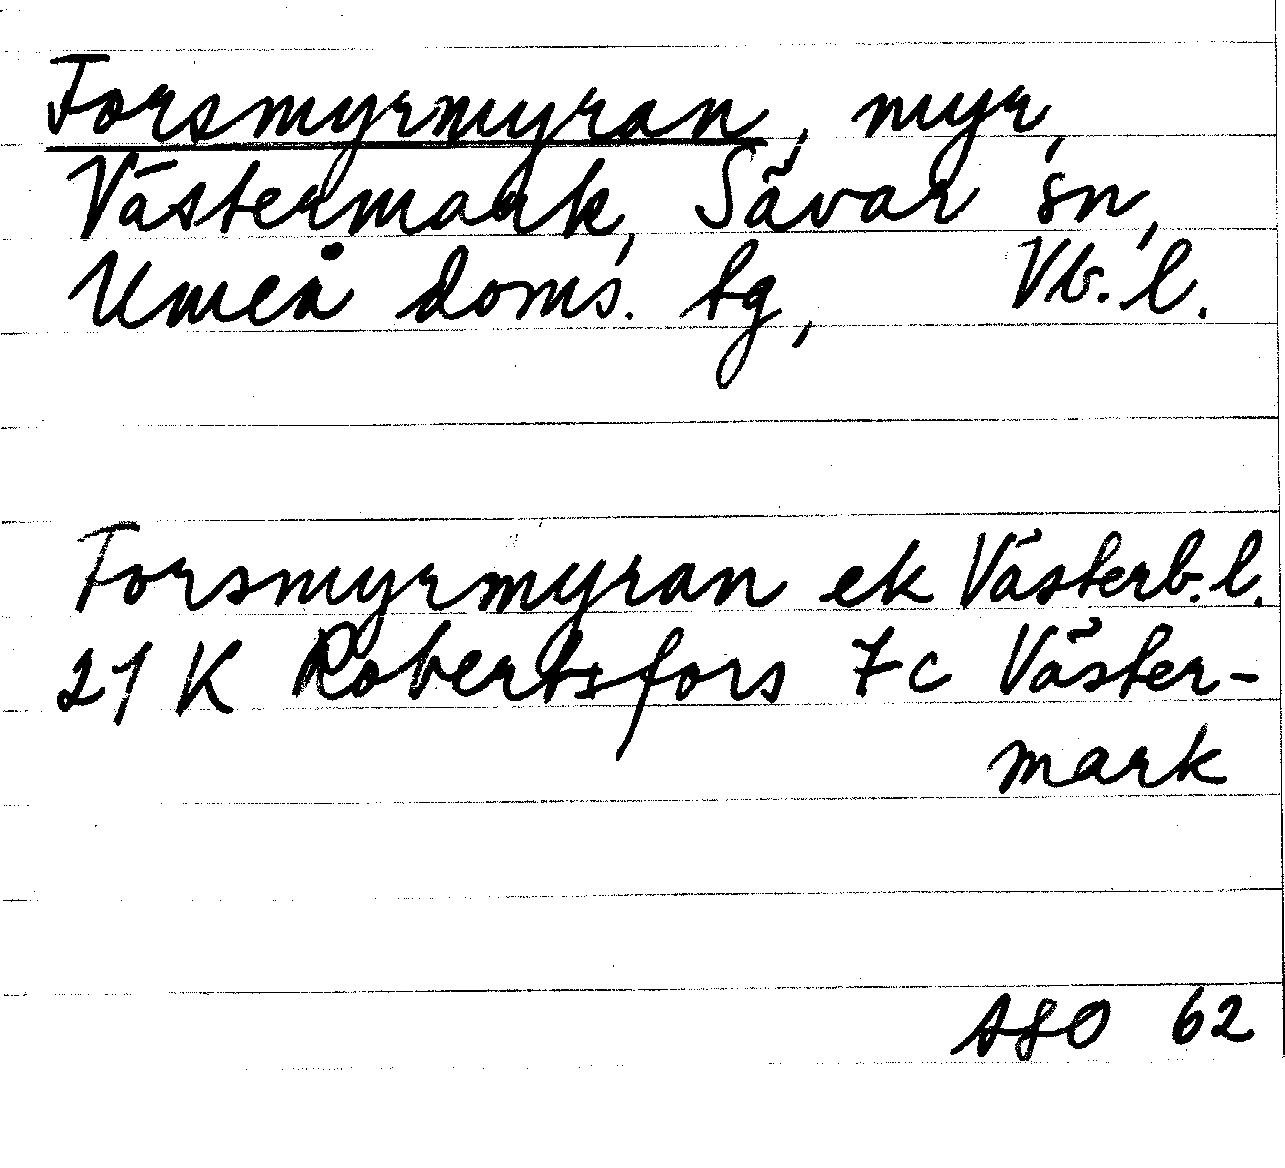 Forsmyrmyran, myr,
Västermark, Sävar sn,
Umeå doms. tg, Vb. l.
Forsmyrmyran ek Västerb. l.
21 K Robertsfors 7c Väster-
mark
ASO 62